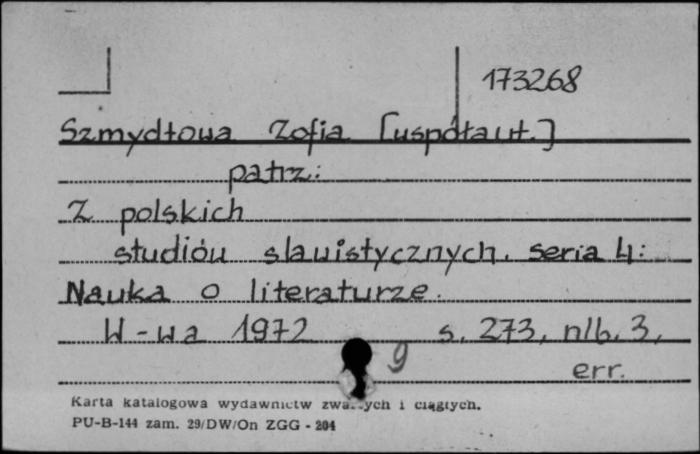 173268
Szmydtowa Zofia [współaut.]
patrz:
Z polskich
studiów slawistycznych. seria 4:
Nauka o literaturze.
W-wa 1972 s. 273, nlb. 3,
9 err.
Karta katalogowa wydawnictw zwartych i ciągłych.
PU-B-144 zam. 29/DW/On ZGG - 204